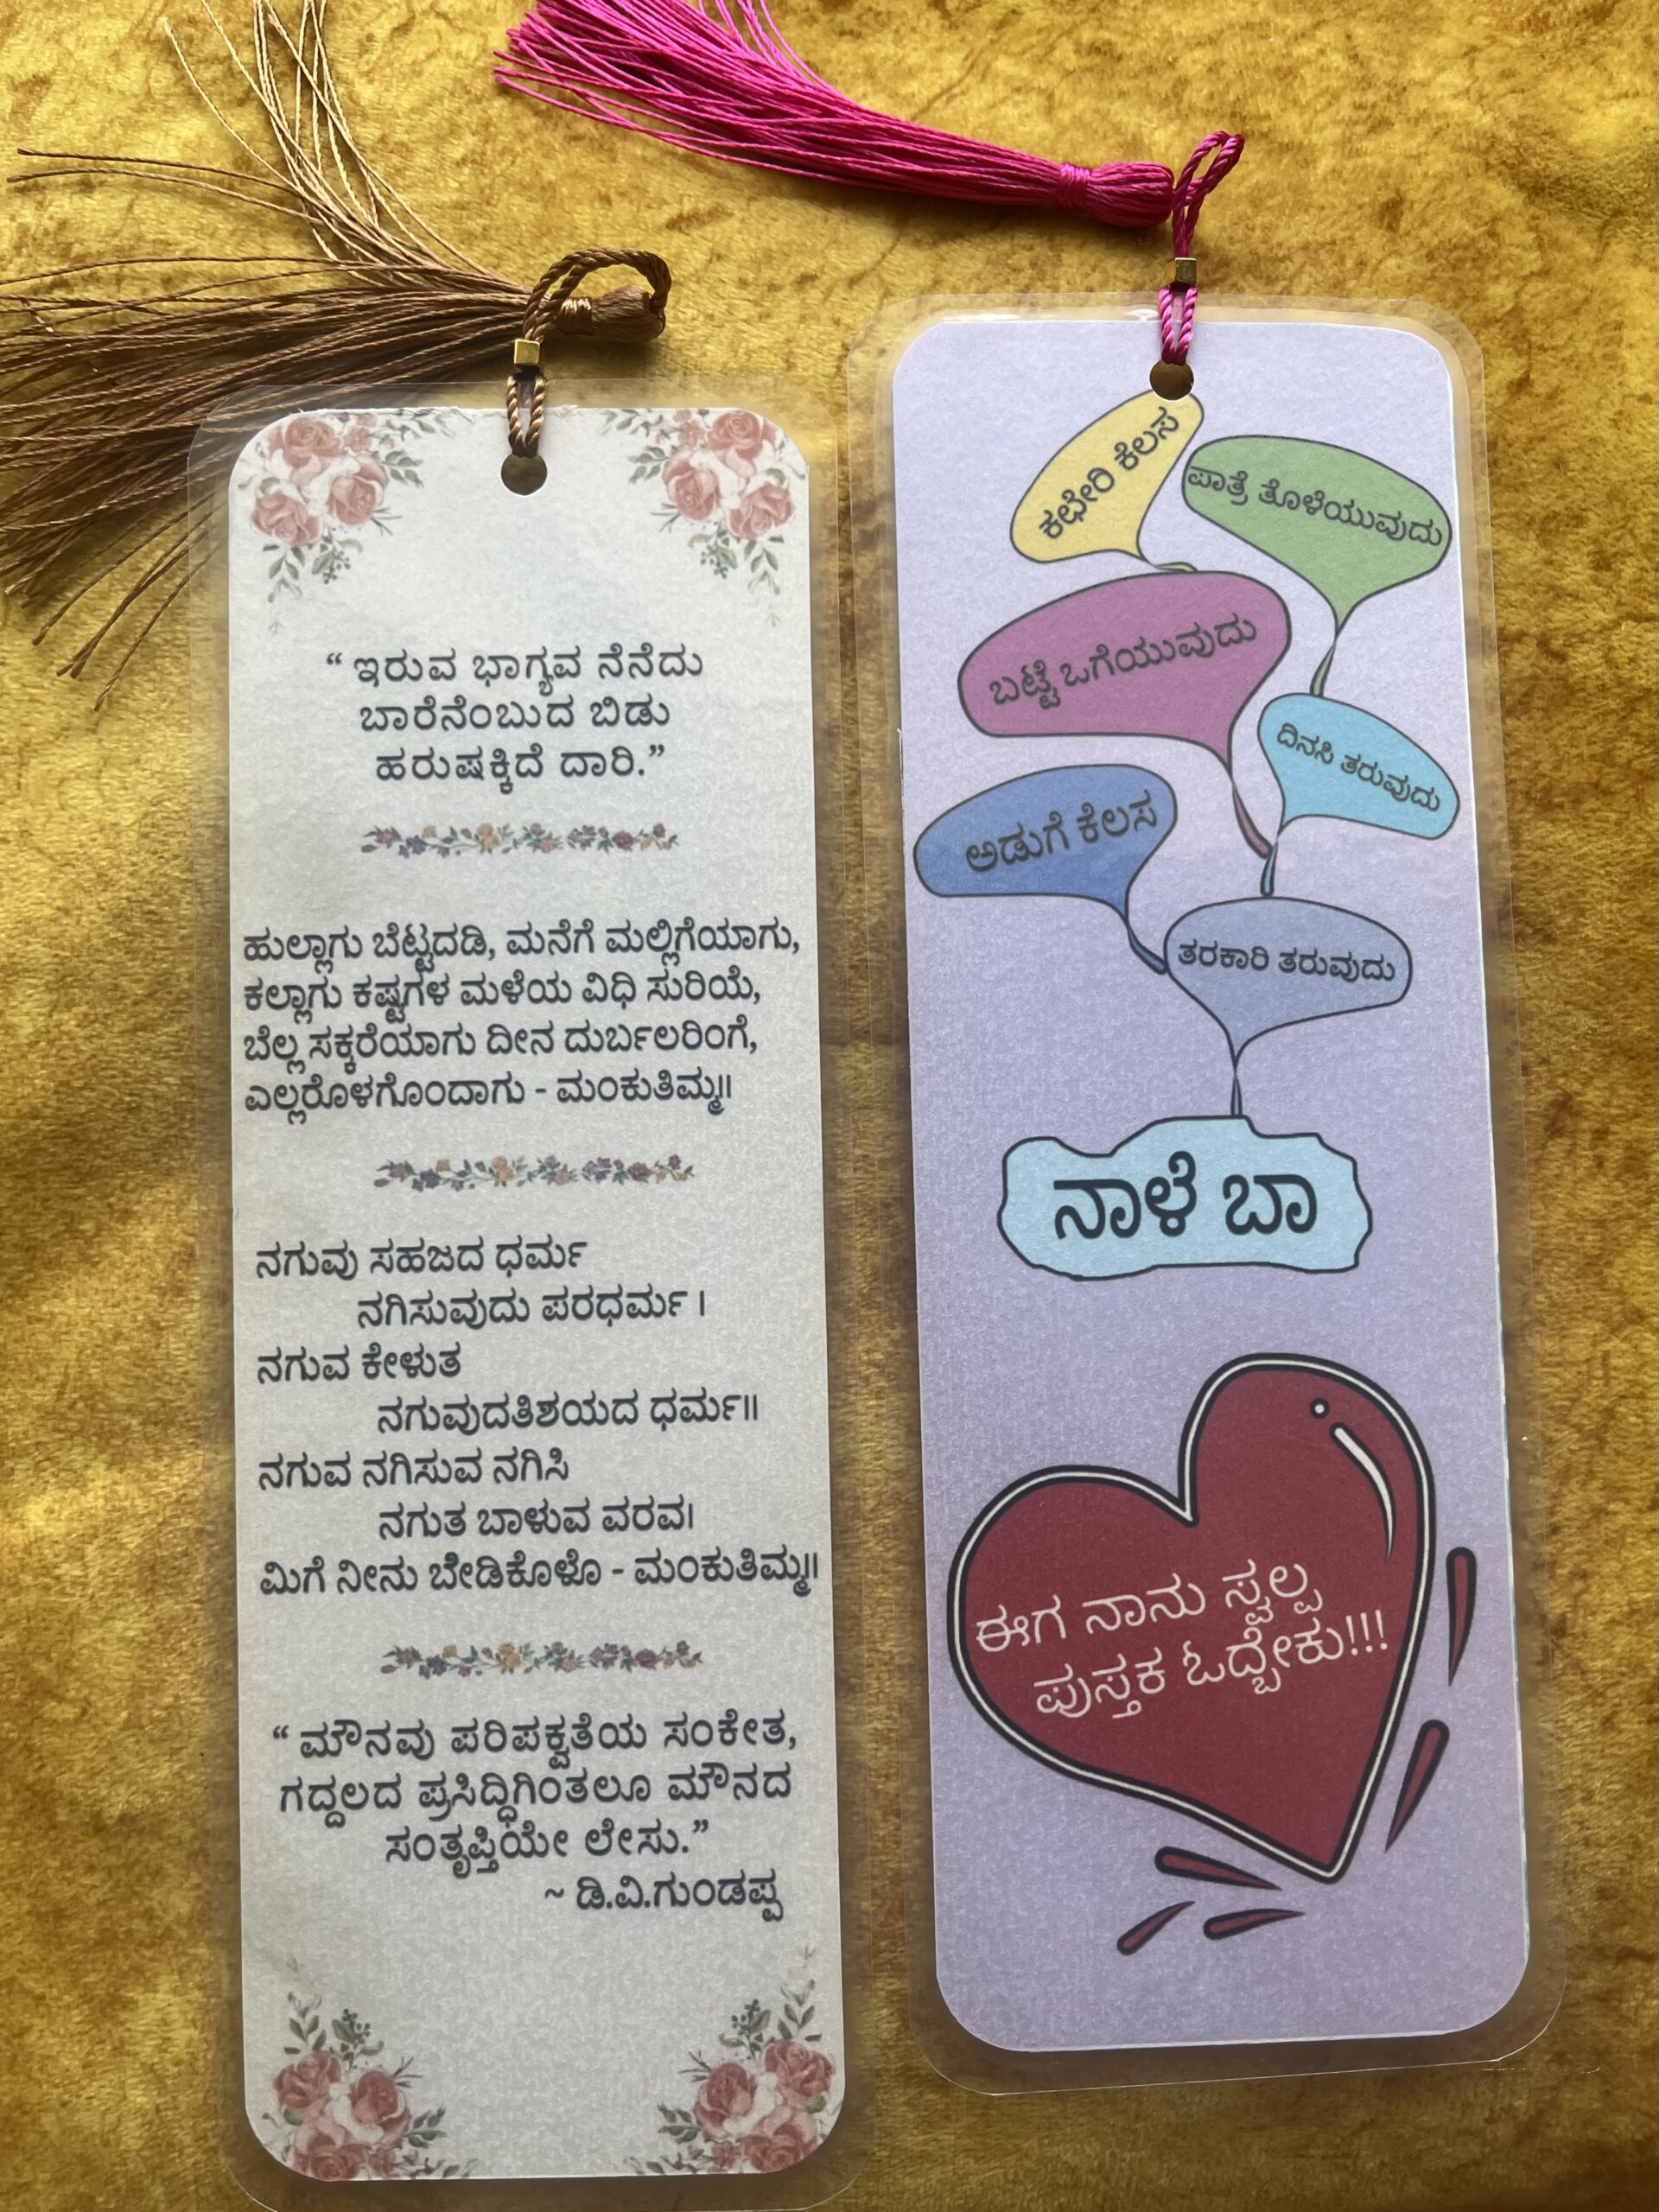 “ ಇರುವ ಭಾಗ್ಯವ ನೆನೆದು
ಬಾರೆನೆಂಬುದ ಬಿಡು
ಹರುಷಕ್ಕಿದೆ ದಾರಿ.”
ಹುಲ್ಲಾಗು ಬೆಟ್ಟದಡಿ, ಮನೆಗೆ ಮಲ್ಲಿಗೆಯಾಗು,
ಕಲ್ಲಾಗು ಕಷ್ಟಗಳ ಮಳೆಯ ವಿಧಿ ಸುರಿಯೆ,
ಬೆಲ್ಲ ಸಕ್ಕರೆಯಾಗು ದೀನ ದುರ್ಬಲರಿಂಗೆ,
ಎಲ್ಲರೊಳಗೊಂದಾಗು - ಮಂಕುತಿಮ್ಮ॥
ನಗುವು ಸಹಜದ ಧರ್ಮ
ನಗಿಸುವುದು ಪರಧರ್ಮ ।
ನಗುವ ಕೇಳುತ
ನಗುವುದತಿಶಯದ ಧರ್ಮ॥
ನಗುವ ನಗಿಸುವ ನಗಿಸಿ
ನಗುತ ಬಾಳುವ ವರವ।
ಮಿಗೆ ನೀನು ಬೇಡಿಕೊಳೊ - ಮಂಕುತಿಮ್ಮ॥
“ ಮೌನವು ಪರಿಪಕ್ವತೆಯ ಸಂಕೇತ,
ಗದ್ದಲದ ಪ್ರಸಿದ್ಧಿಗಿಂತಲೂ ಮೌನದ
ಸಂತೃಪ್ತಿಯೇ ಲೇಸು.”
~ ಡಿ.ವಿ.ಗುಂಡಪ್ಪ
ಕಛೇರಿ ಕೆಲಸ
ಪಾತ್ರೆ ತೊಳೆಯುವುದು
ಬಟ್ಟೆ ಒಗೆಯುವುದು
ದಿನಸಿ ತರುವುದು
ಅಡುಗೆ ಕೆಲಸ
ತರಕಾರಿ ತರುವುದು
ನಾಳೆ ಬಾ
ಈಗ ನಾನು ಸ್ವಲ್ಪ
ಪುಸ್ತಕ ಓದ್ಬೇಕು!!!